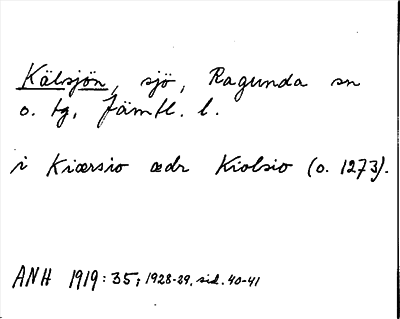 Kälsjön, sjö, Ragunda sn
o. tg, Jämtl. l.
i Kiærsio ædr Kiolsio (o. 1273).
ANH 1919:35; 1928-29, sid. 40-41